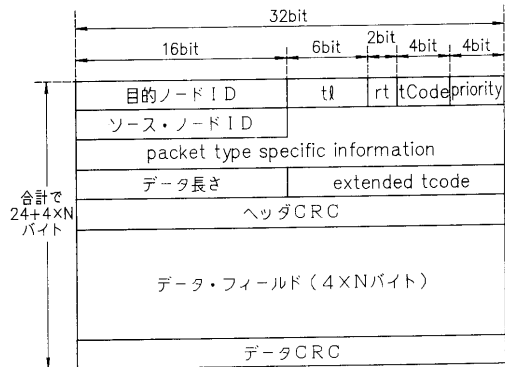 32bit
2bit
16bit 6bit 4bit 4bit
目的ノードID tl rt tCode priority
ソース・ノードID
packet type specific information
データ長さ extended tcode
合計で
24+4×N
バイト
ヘッダCRC
データ・フィールド(4×Nバイト)
データCRC